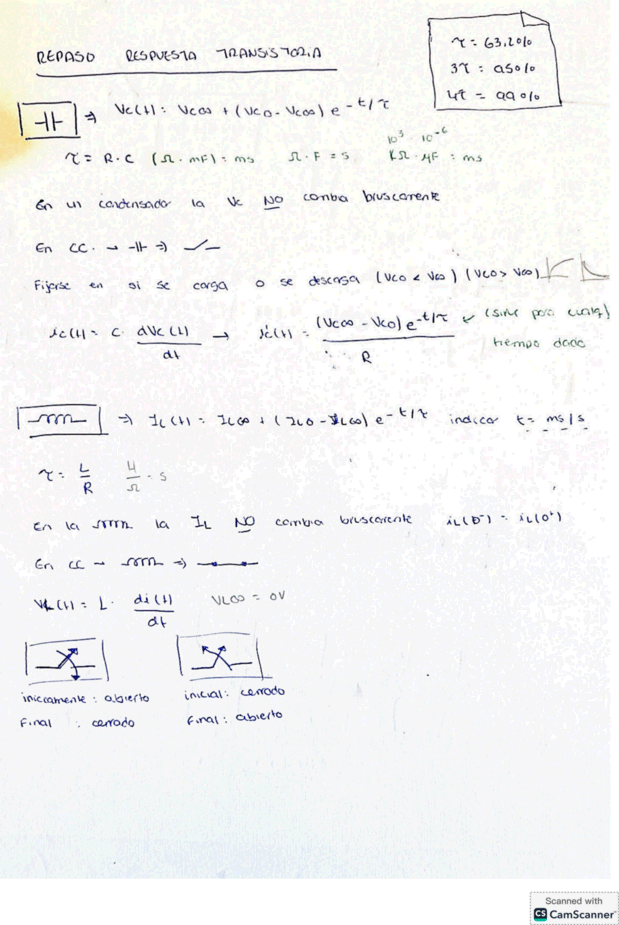 REPASO RESPUESTA TRANSISTORIA
τ = 63,20%
3τ = 95%
4τ = 99%
⇒ Vc(t) = Vc∞ + (Vco - Vc∞) e^-t/τ
τ = R·C (Ω·mF) = ms Ω·F = s 10³ 10^-6 KΩ·μF = ms
En un condensador la Vc NO cambia bruscamente
En CC. → ⊣⊢ ⇒
Fijarse en si se carga o se descarga (Vco < Vc∞) (Vco > Vc∞)
ic(t) = C · dVc(t)/dt → ic(t) = (Vc∞ - Vco) e^-t/τ / R (sirve para cualq) tiempo dado
⇒ IL(t) = IL∞ + (ILo - IL∞) e^-t/τ indicar t = ms/s
τ = L/R H/Ω · s
En la la IL NO cambia bruscamente iL(0⁻) = iL(0⁺)
En CC → ⇒
VL(t) = L · di(t)/dt VL∞ = 0V
abierto
Final : cerrado
inicial : cerrado
Final : abierto
Scanned with
CS CamScanner